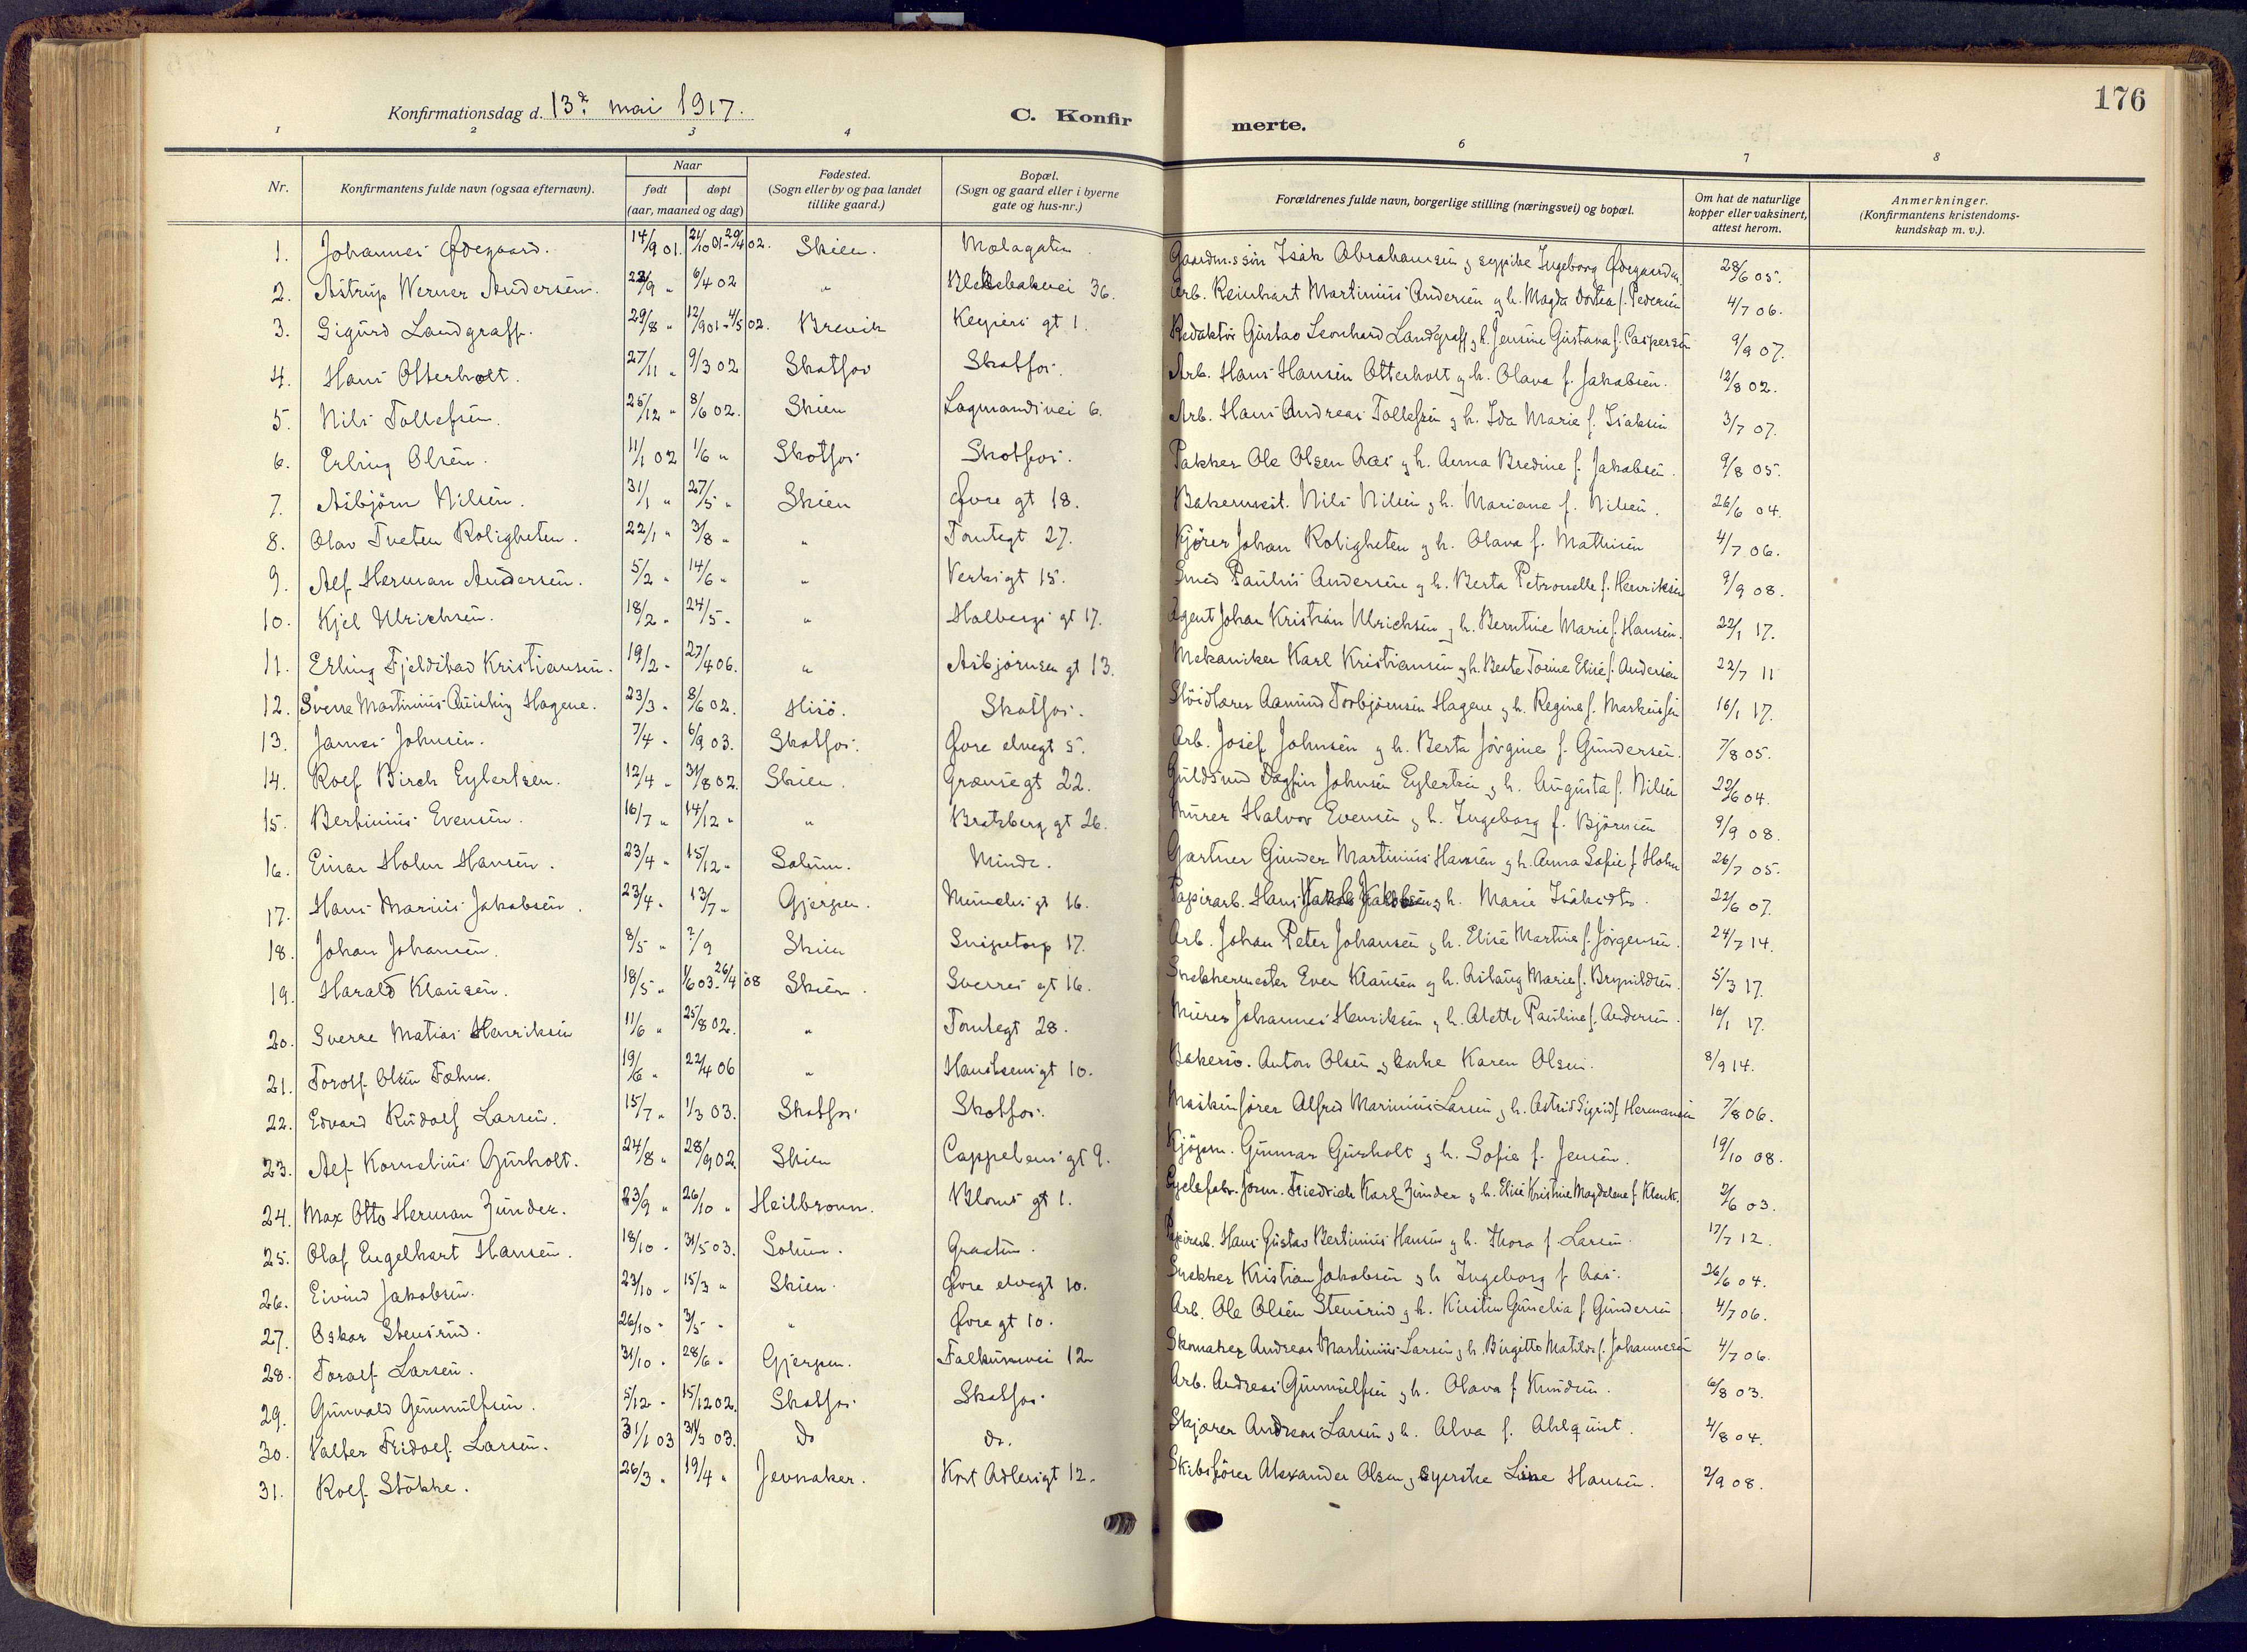 176
Konfirmationsdag d. 13de mai 1917.
C. Konfirmerte.
1 2 3 4 6 7 8
Nr. | Konfirmantens fulde navn (ogsaa efternavn). | Naar født døpt (aar, maaned og dag) | Fødested. (Sogn eller by og paa landet tillike gaard.) | Bopæl. (Sogn og gaard eller i byerne gate og hus-nr.) | Forældrenes fulde navn, borgerlige stilling (næringsvei) og bopæl. | Om hat de naturlige kopper eller vaksinert, attest herom. | Anmerkninger. (Konfirmantens kristendoms-kundskap m. v.).
1. Johannes Ødegaard. 14/9 01. 21/10 01 - 29/4 02. Skien. Molagaten Gaardm.søn Isak Abrahamsen og sypike Ingeborg Ødegaarden 28/6 05.
2. Astrup Werner Andersen. 22/9 " 6/4 02 " Blekebakvei 36. Arb. Reinhart Martinius Andersen og h. Magda Dortea f. Pedersen 4/7 06.
3. Sigurd Landgraff. 29/8 " 12/9 01 - 4/5 02. Brevik Keysers gt 1. Redaktör Gustav Leonhard Landgraff og h. Jensine Gustava f. Caspersen 9/9 07.
4. Hans Otterholt. 27/11 " 9/3 02 Skotfos Skotfos. Arb. Hans Hansen Otterholt og h. Olava f. Jakobsen. 12/8 02.
5. Nils Tollefsen. 25/12 " 8/6 02. Skien Lagmandsvei 6. Arb. Hans Andreas Tollefsen og h. Ida Marie f. Isaksen 3/7 07.
6. Erling Olsen. 11/1 02 1/6 " Skotfos Skotfos. Pakker Ole Olsen Aas og h. Anna Bredine f. Jakobsen. 9/8 05.
7. Asbjörn Nilsen. 31/1 " 27/5 " Skien Øvre gt 18. Bakermest. Nils Nilsen og h. Mariane f. Nilsen. 26/6 04.
8. Olav Tveten Roligheten. 22/1 " 3/8 " " Tomtegt 27. Kjörer Johan Roligheten og h. Olava f. Mathisen 4/7 06.
9. Alf Herman Andersen. 5/2 " 14/6 " " Verksgt 15. Smed Paulus Andersen og h. Berta Petronelle f. Henriksen 9/9 08.
10. Kjel Ulrichsen. 18/2 " 24/5 " " Holbergs gt 17. Agent Johan Kristian Ulrichsen og h. Berntine Marie f. Hansen. 22/1 17.
11. Erling Fjeldstad Kristiansen. 19/2 " 27/4 06. " Asbjørnsen gt 13. Mekaniker Karl Kristiansen og h. Berte Torine Elise f. Andersen 22/7 11
12. Sverre Martinius Hagene. 23/3 " 8/6 02. Hisö. Skotfos. Slöidlærer Aamund Torbjørnsen Hagene og h. Regine f. Markussen 16/1 17.
13. James Johnsen. 7/4 " 6/9 03. Skotfos. Øvre elvegt 5. Arb. Josef Johnsen og h. Berta Jörgine f. Gundersen. 7/8 05.
14. Rolf Birch Eylertsen. 12/4 " 31/8 02. Skien. Grænsegt 22. Guldsmed Dagfin Johnsen Eylertsen og h. Augusta f. Nilsen 22/6 04.
15. Bertinius Evensen. 16/7 " 14/12 " " Bratsberg gt 26. Murer Halvor Evensen og h. Ingeborg f. Björnsen 9/9 08.
16. Einar Holm Hansen. 23/4 " 15/12 " Solum. Minde. Gartner Gunder Martinius Hansen og h. Anna Sofie f. Holm 26/7 05.
17. Hans Marius Jakobsen. 23/4 " 13/7 " Gjerpen. Munchs gt 16. Papirarb. Hans Jakob Jakobsen og h. Marie Isaksdtr. 22/6 07.
18. Johan Johansen. 8/5 " 7/9 Skien Snipetorp 17. Arb. Johan Peter Johansen og h. Elise Martine f. Jörgensen. 24/7 14.
19. Harald Klausen. 18/5 " 1/6 03 - 26/4 08 Skien. Sverres gt 16. Snekkermester Even Klausen og h. Aslaug Marie f. Brynildsen. 5/3 17.
20. Sverre Matias Henriksen 11/6 " 25/8 02. " Tomtegt 28. Murer Johannes Henriksen og h. Alette Pauline f. Andersen. 16/1 17.
21. Torolf Olsen Fæhn. 19/6 " 22/4 06 " Hansteensgt 10. Bakersv. Anton Olsen og enke Karen Olsen. 8/9 14.
22. Edvard Rudolf Larsen. 15/7 " 1/3 03. Skotfos Skotfos. Maskinförer Alfred Marinius Larsen og h. Astrid Sigrid f. Hermansen 7/8 06.
23. Alf Kornelius Gurholt. 24/8 " 28/9 02. Skien Cappelens gt 9. Kjöpm. Gunnar Gurholt og h. Sofie f. Jensen. 19/10 08.
24. Max Otto Herman Zunder. 23/9 " 26/10 " Heilbronn. Bloms gt 1. Cyclefabr. form. Friedrich Karl Zunder og h. Elise Kristine Magdalene f. Klenk. 2/6 03.
25. Olaf Engelhart Hansen. 18/10 " 31/5 03. Solum. Graaten. Papirarb. Hans Gustav Bertinius Hansen og h. Thora f. Larsen. 17/7 12.
26. Eivind Jakobsen. 23/10 " 15/3 " Skien. Øvre elvegt 10. Snekker Kristian Jakobsen og h. Ingeborg f. Aas. 26/6 04.
27. Oskar Stensrud. 26/10 " 3/5 " " Øvre gt 10. Arb. Ole Olsen Stensrud og h. Kirstin Gunelia f. Gundersen 4/7 06.
28. Toralf Larsen. 31/10 " 28/6 " Gjerpen. Falkumvei 12. Skomaker Andreas Martinius Larsen og h. Birgitte Matilde f. Johannesen 4/7 06.
29. Gunvald Gunnulfsen. 5/12 " 15/12 02. Skotfos Skotfos. Arb. Andreas Gunnulfsen og h. Olava f. Knudsen. 6/8 03.
30. Valter Fridolf Larsen. 31/1 03 31/5 03. do do. Skjærer Andreas Larsen og h. Alva f. Ahlquist. 4/8 04.
31. Rolf Stökke. 26/3 " 19/4 " Jevnaker. Kort Adlersgt 12. Skibsförer Alexander Olsen og syerske Line Hansen. 2/9 08.